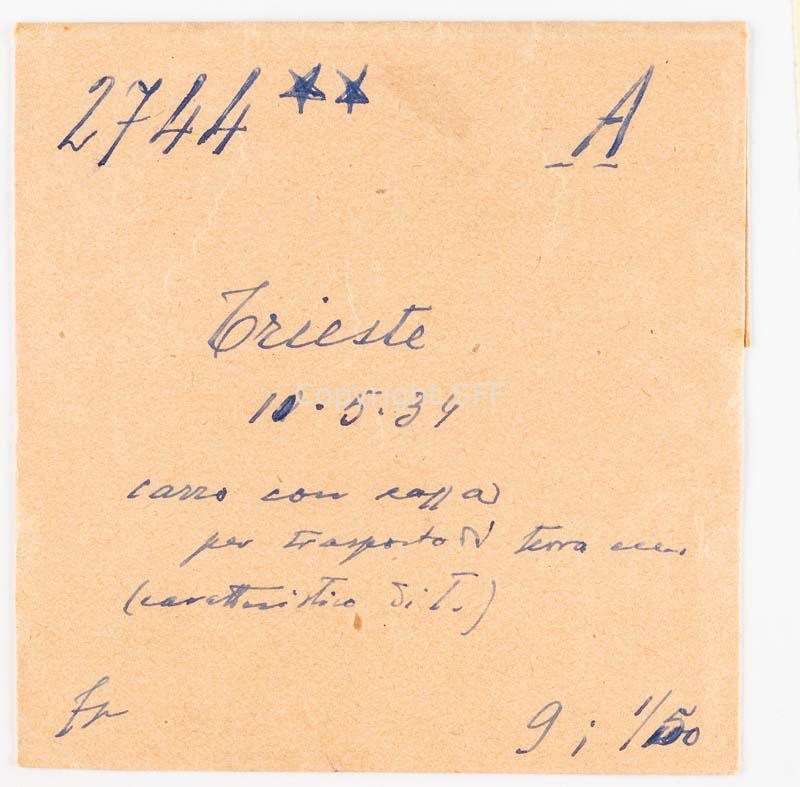 2744 ★★ A
Trieste
Copyright GFF
10.5.34
carro con cassa
per trasporto di terra ecc.
(caratteristico di T.)
Fr
9; 1/50